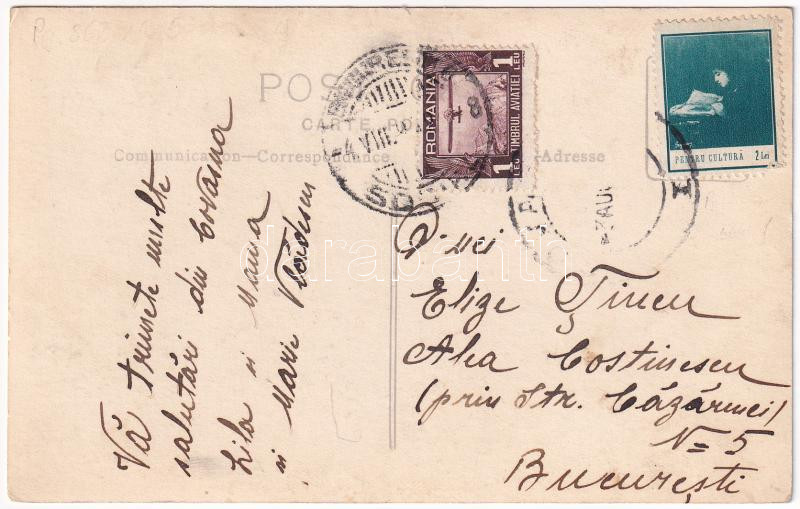 POS
CARTE PO
Communication—Correspondence
Adresse
ROMANIA
1 LEU
TIMBRUL AVIAȚIEI
1 LEU
PENTRU CULTURĂ 2 Lei
4 VIII
8
AUG
I
Vă trimete multe
salutări din Covasna
Lila și Mama
și Marie
D-nei
Elize Țincu
Alea Costinescu
(prin Str. Căzărmei)
N= 5
București
darabanth